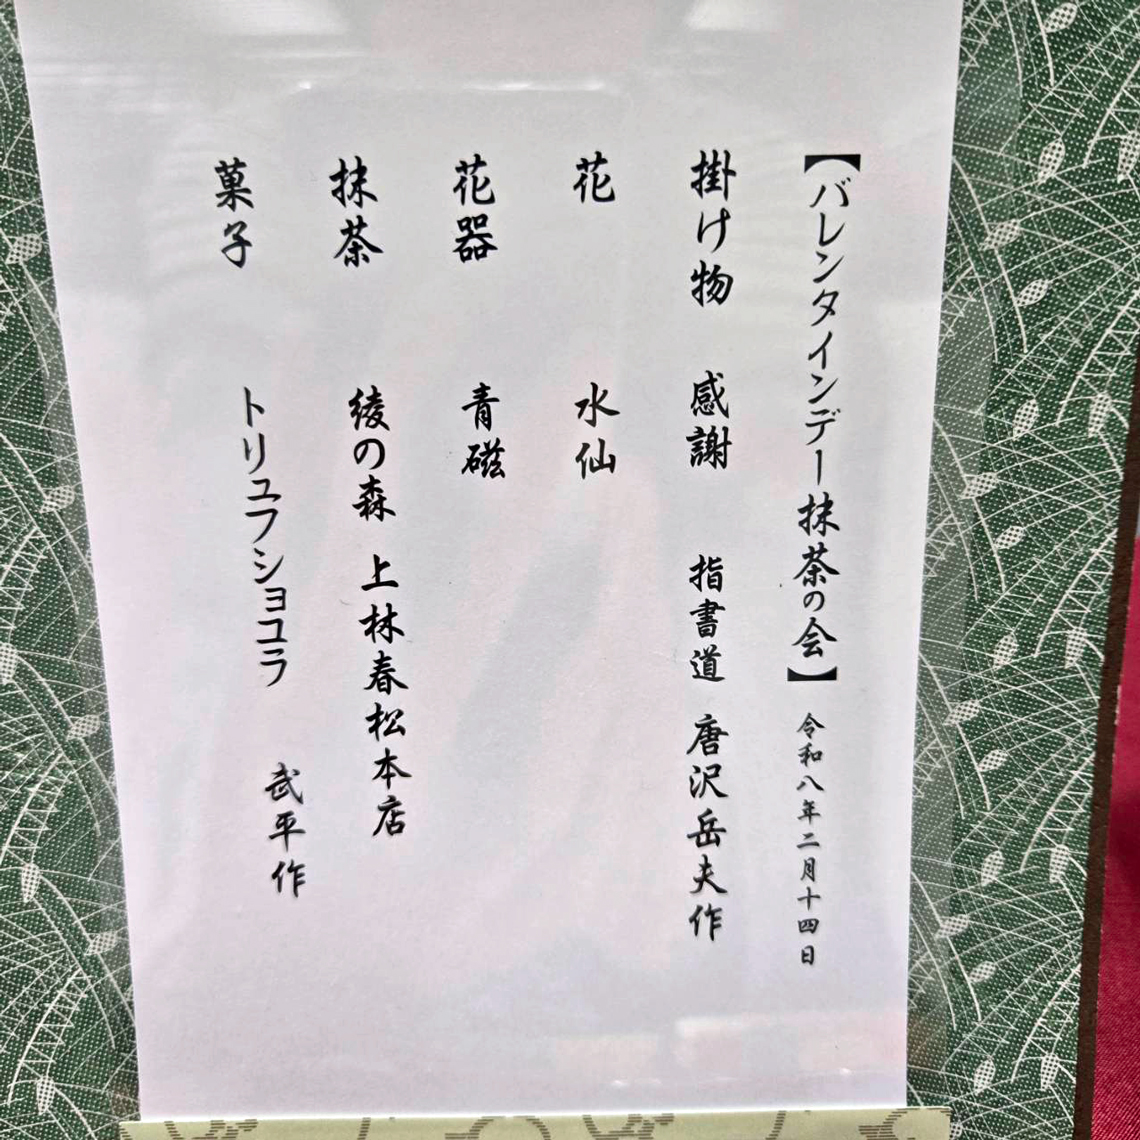 【バレンタインデー抹茶の会】 令和八年二月十四日
掛け物 感謝 指書道 唐沢岳夫作
花 水仙
花器 青磁
抹茶 綾の森 上林春松本店
菓子 トリュフショコラ 武平作